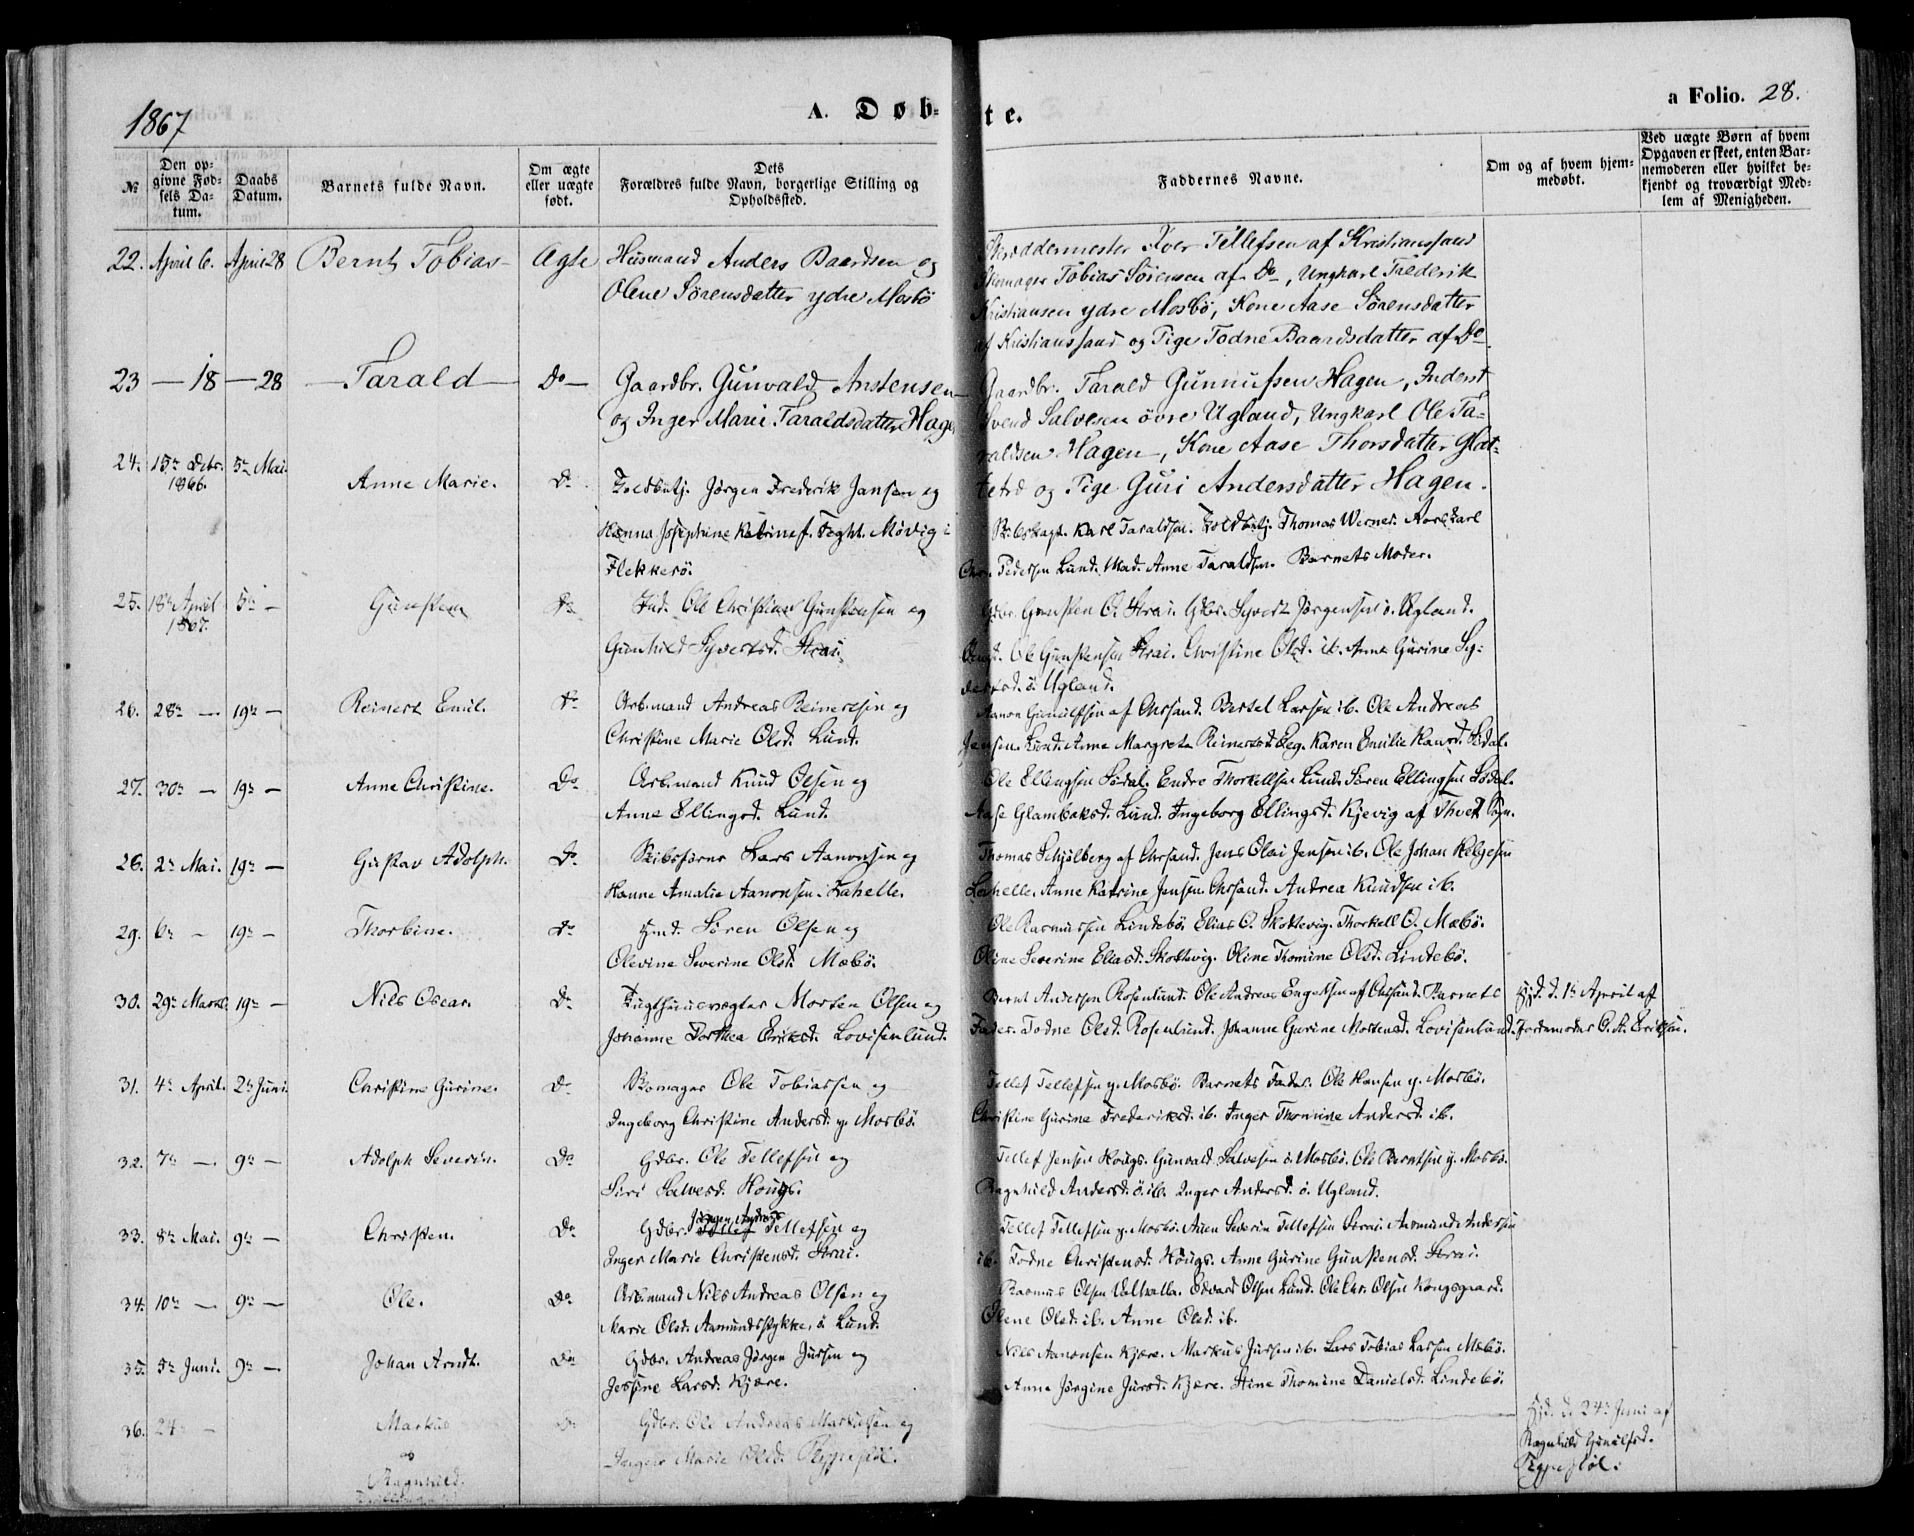 1867
A. Døb-
te.
a Folio. 28.
№
Den op-
givne Fød-
sels Da-
tum.
Daabs
Datum.
Barnets fulde Navn.
Om ægte
eller uægte
født.
Dets
Forældres fulde Navn, borgerlige Stilling og
Opholdssted.
Faddernes Navne.
Om og af hvem hjem-
medøbt.
Ved uægte Børn af hvem
Opgaven er skeet, enten Bar-
nemoderen eller hvilket be-
kjendt og troværdigt Med-
lem af Menigheden.
22. April 6. April 28 Bernt Tobias Ægte Husmand Anders Baardsen og
Olene Sörensdatter ydre Mosbö
Iver Tellefsen af Kristianssand
Tobias Sörensen af Do, Ungkarl Frederik
Kristiansen ydre Mosbö, Kone Aase Sörensdatter
af Kristianssand og Pige Todne Baardsdatter af Do
23 — 18 — 28 Tarald Do Gaardbr. Gunvald Anstensen
og Inger Marie Taraldsdatter Hagen
Gaardbr. Tarald Gunnufsen Hagen, Inderst
Svend Salvesen övre Ugland, Ungkarl Ole Ta-
raldsen Hagen, Kone Aase Thorsdatter Glat-
tetre og Pige Guri Andersdatter Hagen.
24. 15de Decbr. 1866. 5te Mai. Anne Marie. Do Toldbetj. Jörgen Frederik Jansen og
Hanna Josephine Katrine f. Feght. Mövig i
Flekkerö.
Skibskapt. Karl Taraldsen. Toldbetj. Thomas Werner. Karl
Chr. Pedersen Lund. Mad. Anne Taraldsen. Barnets Moder.
25. 18de April 1867. 5te — Gunsten Do Ind. Ole Christian Gunstensen og
Gunhild Syvertsd. Strai.
Gdbr. Gunsten O. Strai. Gdbr. Syvert Jörgensen ö. Ugland.
Ole Gunstensen Strai. Christine Olsd. ib. Anne Gurine Sy-
vertsd. ö. Ugland.
26. 28de — 19de — Reinert Emil. Do Arb.mand Andreas Reinertsen og
Christine Marie Olsd. Lund.
Aanon Gunulfsen af Chrsand. Bertel Larsen ib. Ole Andreas
Jensen Lund. Anne Margrete Reinertsd. Eeg. Karen Emilie Södal.
27. 30te — 19de — Anne Christine. Do Arb.mand Knud Olsen og
Anne Ellingsd. Lund.
Ole Ellingsen Södal. Endre Thorkelsen Lund. Sören Ellingsen Södal.
Aase Glambeksd. Lund. Ingeborg Ellingsd. Kjevig af Thveit Sogn.
28. 2de Mai. 19de — Gustav Adolph. Do Skibsförer Lars Aanonsen og
Hanne Amalie Aanonsen. Lahelle.
Thomas Schjölberg af Chrsand. Jens Olai Jensen ib. Ole Johan Helgesen
Lahelle. Anne Katrine Jensen Chrsand. Andrea Knudsen ib.
29. 6te — 19de — Thorbine. Do Hmd. Sören Olsen og
Olevine Severine Olsd. Mæbö.
Ole Rasmussen Lindebö. Elias O. Skottevig. Thorkell O. Mæbö.
Oline Severine Eliasd. Skottevig. Oline Thomine Olsd. Lindebö.
30. 29de Marts. 19de — Nils Oscar. Do Tugthusvægter Morten Olsen og
Johanne Dorthea Eriksd. Lovisenlund.
Bernt Andersen Rosenlund. Ole Andreas Engelsen af Chrsand. Barnets
Fader. Todne Olsd. Rosenlund. Johanne Gurine Mortensd. Lovisenlund.
Hjd. d. 1ste April af
Jordemoder C. A. Eriksen.
31. 4de April. 2den Juni. Christine Gurine. Do Skomager Ole Tobiassen og
Ingeborg Christine Andersd. y. Mosbö.
Tellef Tellefsen y. Mosbö. Barnets Fader. Ole Hansen y. Mosbö.
Christine Gurine Frederiksd. ib. Inger Thomine Andersd. ib.
32. 7de — 9de — Adolph Severin. Do Gdbr. Ole Tellefsen og
Siri Salvesd. Hougs.
Tellef Jensen Hougs. Gunvald Salvesen ö. Mosbö. Ole Berntsen y. Mosbö.
Ragnhild Andersd. ö. ib. Inger Andersd. ö. Ugland.
33. 8de Mai. 9de — Christen. Do Gdbr. Jörgen Andreas Tellef Tellefsen og
Inger Marie Christensd. Strai.
Tellef Tellefsen y. Mosbö. Severin Tellefsen Strai. Aamund Andersen
ib. Todne Christensd. Hougs. Anne Gurine Gunstensd. Strai.
34. 10de — 9de — Ole. Do Arb.mand Nils Andreas Olsen og
Marie Olsd. Aamundsstykke, ö. Lund.
Rasmus Olsen Valhalla. Edvard Olsen Lund. Ole Chr. Olsen Kongsgaard.
Olene Olsd. ib. Anne Olsd. ib.
35. 5te Juni. 9de — Johan Arndt. Do Gdbr. Andreas Jörgen Jursen og
Jessine Larsd. Kjære.
Nils Aanonsen Kjære. Markus Jursen ib. Lars Tobias Larsen Mæbö.
Anne Jörgine Jursd. Kjære. Stine Thomine Danielsd. Lindebö.
36. 24de — Markus Do Gdbr. Ole Andreas Markussen og
Inger Marie Olsd.
og
Ragnhild.
Hjd. d. 24de Juni af
Ragnhild Gunulfsd.